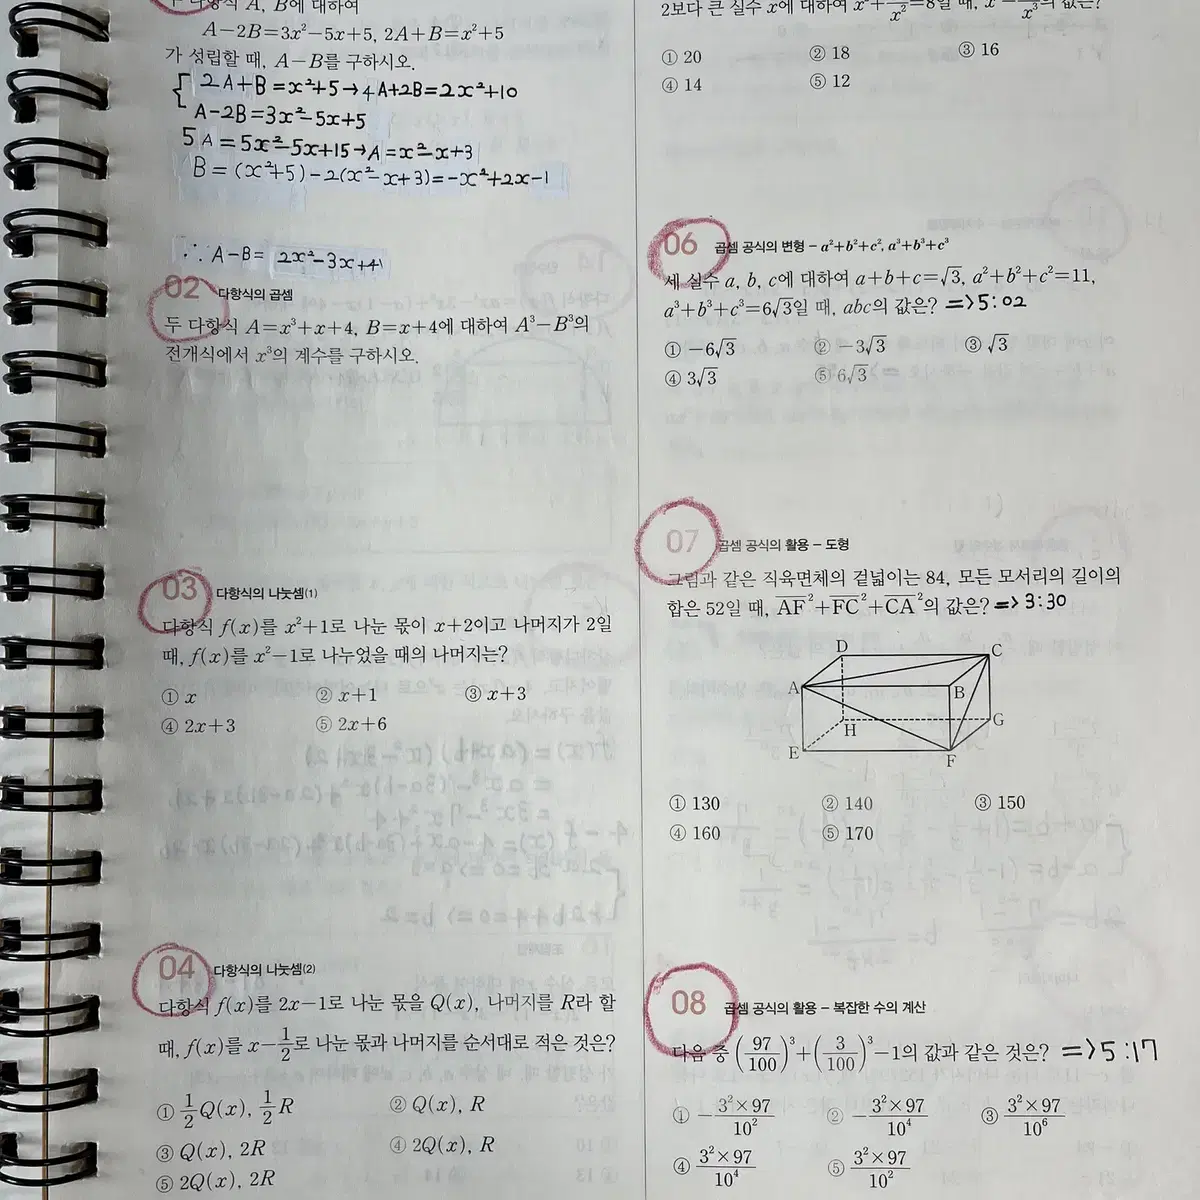 두 다항식 A, B에 대하여
A−2B=3x²−5x+5, 2A+B=x²+5
가 성립할 때, A−B를 구하시오.
2A+B=x²+5→4A+2B=2x²+10
A-2B=3x²-5x+5
5A=5x²-5x+15→A=x²-x+3
B=(x²+5)-2(x²-x+3)=-x²+2x-1
∴ A-B= 2x²-3x+4
02 다항식의 곱셈
두 다항식 A=x³+x+4, B=x+4에 대하여 A³−B³의
전개식에서 x³의 계수를 구하시오.
03 다항식의 나눗셈(1)
다항식 f(x)를 x²+1로 나눈 몫이 x+2이고 나머지가 2일
때, f(x)를 x²−1로 나누었을 때의 나머지는?
① x ② x+1 ③ x+3
④ 2x+3 ⑤ 2x+6
04 다항식의 나눗셈(2)
다항식 f(x)를 2x−1로 나눈 몫을 Q(x), 나머지를 R라 할
때, f(x)를 x−1/2로 나눈 몫과 나머지를 순서대로 적은 것은?
① 1/2Q(x), 1/2R ② Q(x), R
③ Q(x), 2R ④ 2Q(x), R
⑤ 2Q(x), 2R
2보다 큰 실수 x에 대하여
① 20 ② 18 ③ 16
④ 14 ⑤ 12
06 곱셈 공식의 변형 − a²+b²+c², a³+b³+c³
세 실수 a, b, c에 대하여 a+b+c=√3, a²+b²+c²=11,
a³+b³+c³=6√3일 때, abc의 값은? =>5:02
① −6√3 ② −3√3 ③ √3
④ 3√3 ⑤ 6√3
07 곱셈 공식의 활용 − 도형
그림과 같은 직육면체의 겉넓이는 84, 모든 모서리의 길이의
합은 52일 때, AF²+FC²+CA²의 값은? => 3:30
D C
A B
H G
E F
① 130 ② 140 ③ 150
④ 160 ⑤ 170
08 곱셈 공식의 활용 − 복잡한 수의 계산
다음 중 (97/100)³+(3/100)³−1의 값과 같은 것은? =>5:17
① −3²×97/10² ② −3²×97/10⁴ ③ 3²×97/10⁶
④ 3²×97/10⁴ ⑤ 3²×97/10²